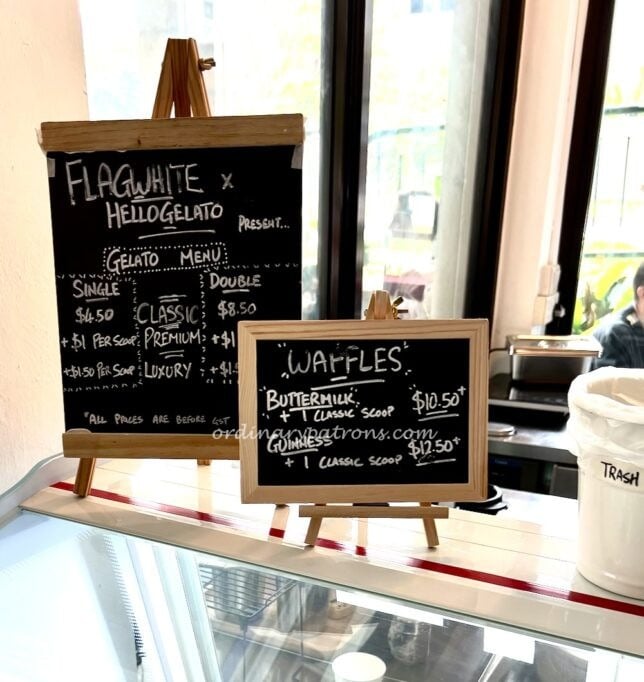 FLAGWHITE x
HELLOGELATO
PRESENT...
GELATO MENU
SINGLE DOUBLE
$4.50 CLASSIC $8.50
+$1 PER SCOOP PREMIUM +$1
+$1.50 PER SCOOP LUXURY
*ALL PRICES ARE BEFORE GST
"WAFFLES"
BUTTERMILK $10.50+
+ 1 CLASSIC SCOOP
GUINNESS $12.50+
+ 1 CLASSIC SCOOP
ordinarypatrons.com
TRASH